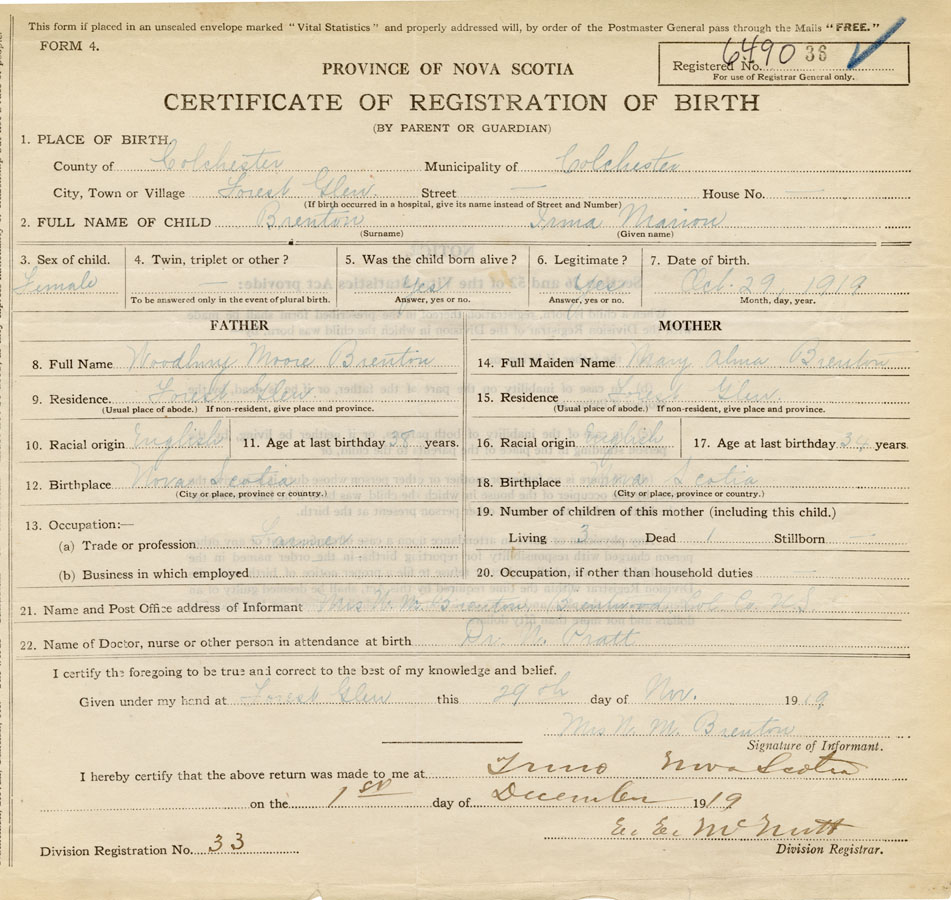 This form if placed in an unsealed envelope marked "Vital Statistics" and properly addressed will, by order of the Postmaster General pass through the Mails "FREE."
FORM 4.
Registered No. 6490 36
For use of Registrar General only.
PROVINCE OF NOVA SCOTIA
CERTIFICATE OF REGISTRATION OF BIRTH
(BY PARENT OR GUARDIAN)
1. PLACE OF BIRTH,
County of Colchester Municipality of Colchester
City, Town or Village Forest Glen. Street — House No. —
(If birth occurred in a hospital, give its name instead of Street and Number)
2. FULL NAME OF CHILD Brenton Irma Marion
(Surname) (Given name)
3. Sex of child. 4. Twin, triplet or other? 5. Was the child born alive? 6. Legitimate? 7. Date of birth.
Female — Yes Yes Oct. 29, 1919
To be answered only in the event of plural birth. Answer, yes or no. Answer, yes or no. Month, day, year.
FATHER MOTHER
8. Full Name Woodbury Moore Brenton 14. Full Maiden Name Mary Alma Brenton
9. Residence. Forest Glen. 15. Residence Forest Glen.
(Usual place of abode.) If non-resident, give place and province. (Usual place of abode.) If non-resident, give place and province.
10. Racial origin English 11. Age at last birthday 38 years. 16. Racial origin English 17. Age at last birthday 34 years.
12. Birthplace Nova Scotia 18. Birthplace Nova Scotia
(City or place, province or country.) (City or place, province or country.)
13. Occupation:— 19. Number of children of this mother (including this child.)
(a) Trade or profession Farmer Living 3 Dead 1 Stillborn —
(b) Business in which employed 20. Occupation, if other than household duties —
21. Name and Post Office address of Informant Mrs W. M. Brenton, Brentwood, Col. Co. N.S.
22. Name of Doctor, nurse or other person in attendance at birth Dr. Pratt
I certify the foregoing to be true and correct to the best of my knowledge and belief.
Given under my hand at Forest Glen this 29th day of Nov. 1919
Mrs W. M. Brenton
Signature of Informant.
I hereby certify that the above return was made to me at Truro Nova Scotia
on the 1st day of December 1919
McNutt
Division Registration No. 33 Division Registrar.